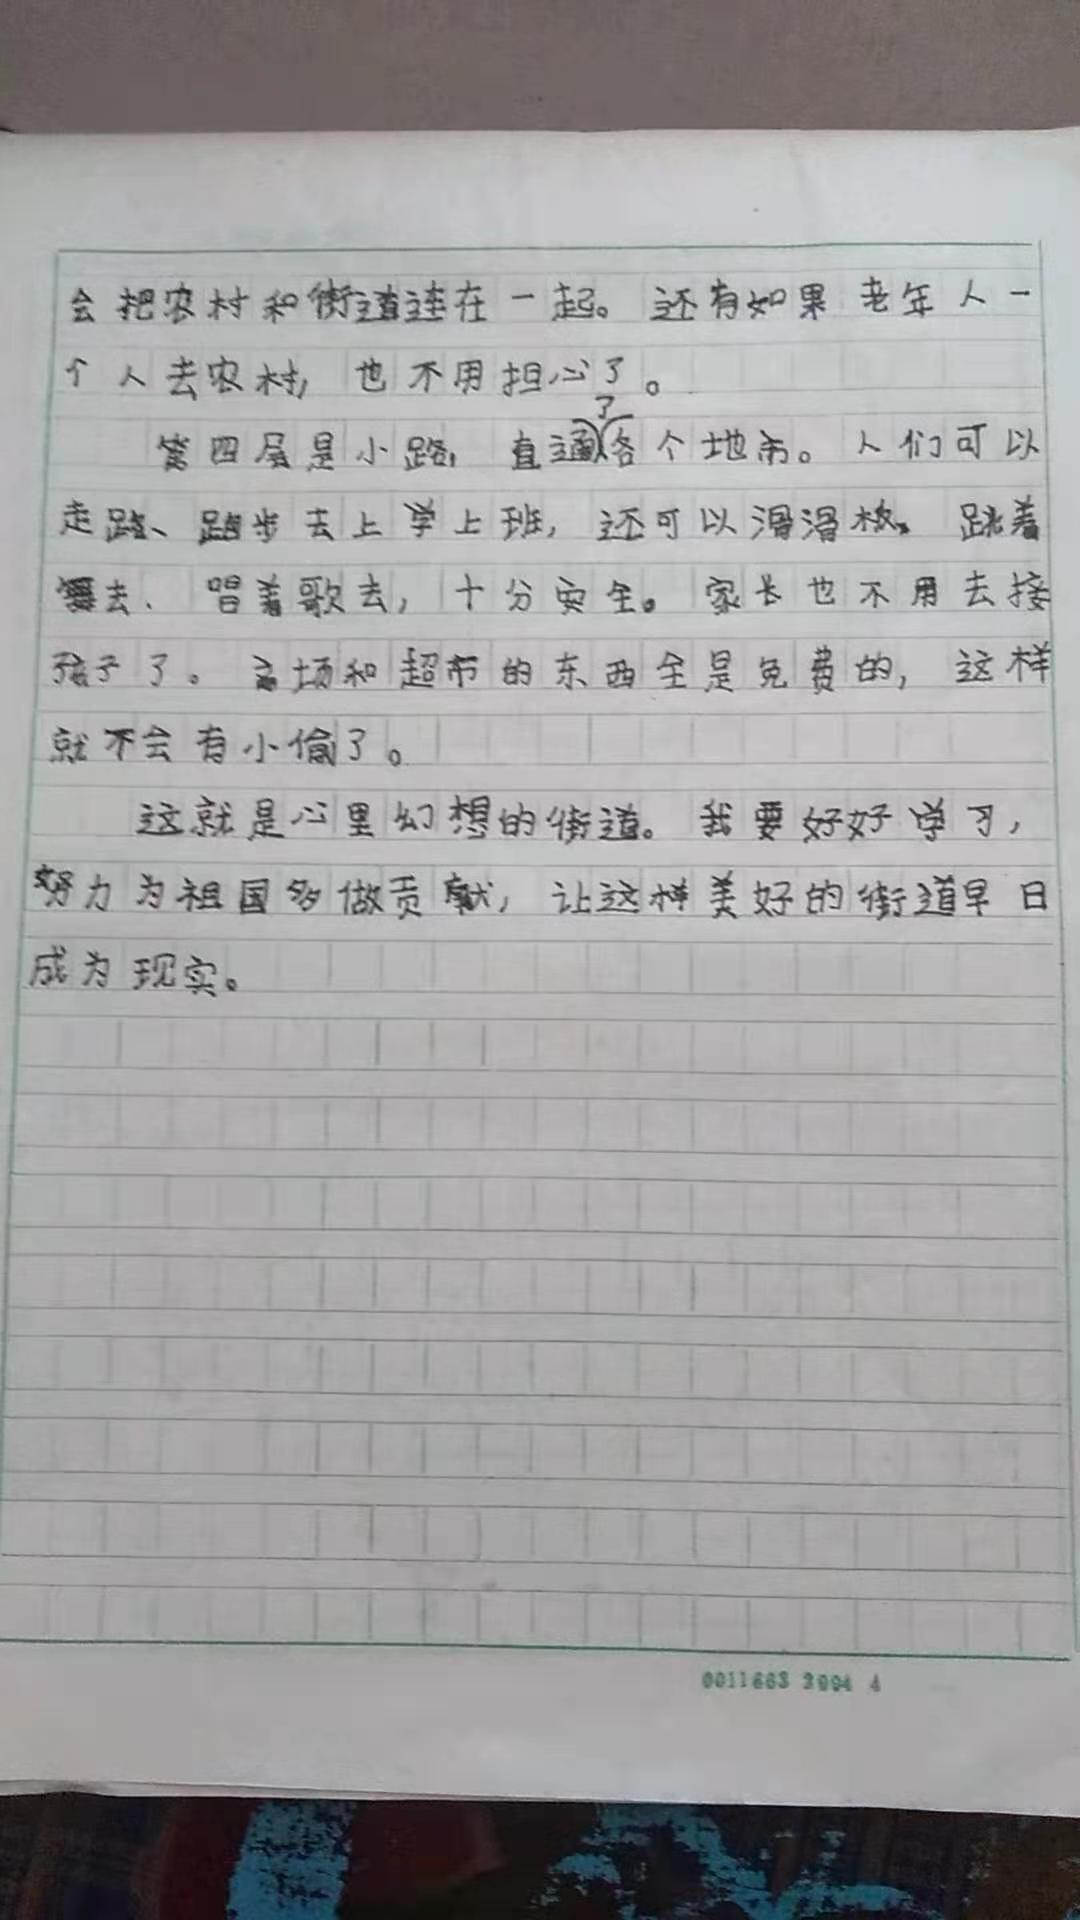 会把农村和街道连在一起。还有如果老年人一
个人去农村，也不用担心了。
第四层是小路，直通了各个地市。人们可以
走路、跑步去上学上班，还可以滑滑板、跳着
舞去、唱着歌去，十分安全。家长也不用去接
孩子了。商场和超市的东西全是免费的，这样
就不会有小偷了。
这就是心里幻想的街道。我要好好学习，
努力为祖国多做贡献，让这样美好的街道早日
成为现实。
0011663 2004 4